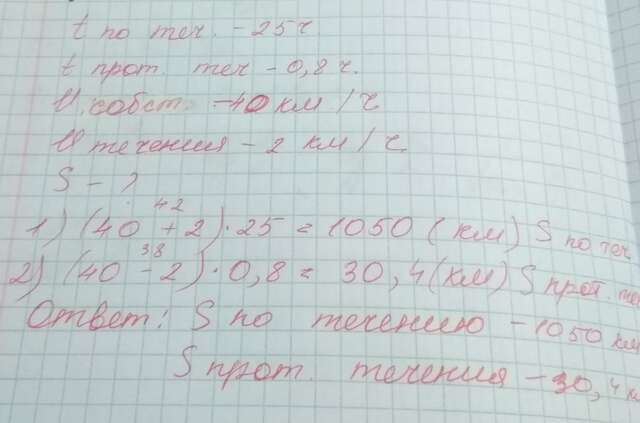 t по теч. - 25 ч
t прот. теч - 0,8 ч.
V собст. - 40 км/ч
V течения - 2 км/ч.
S - ?
42
1) (40 + 2) · 25 = 1050 (км) S по теч
38
2) (40 - 2) · 0,8 = 30,4 (км) S прот. те
Ответ: S по течению - 1050 км
S прот. течения - 30,4 к